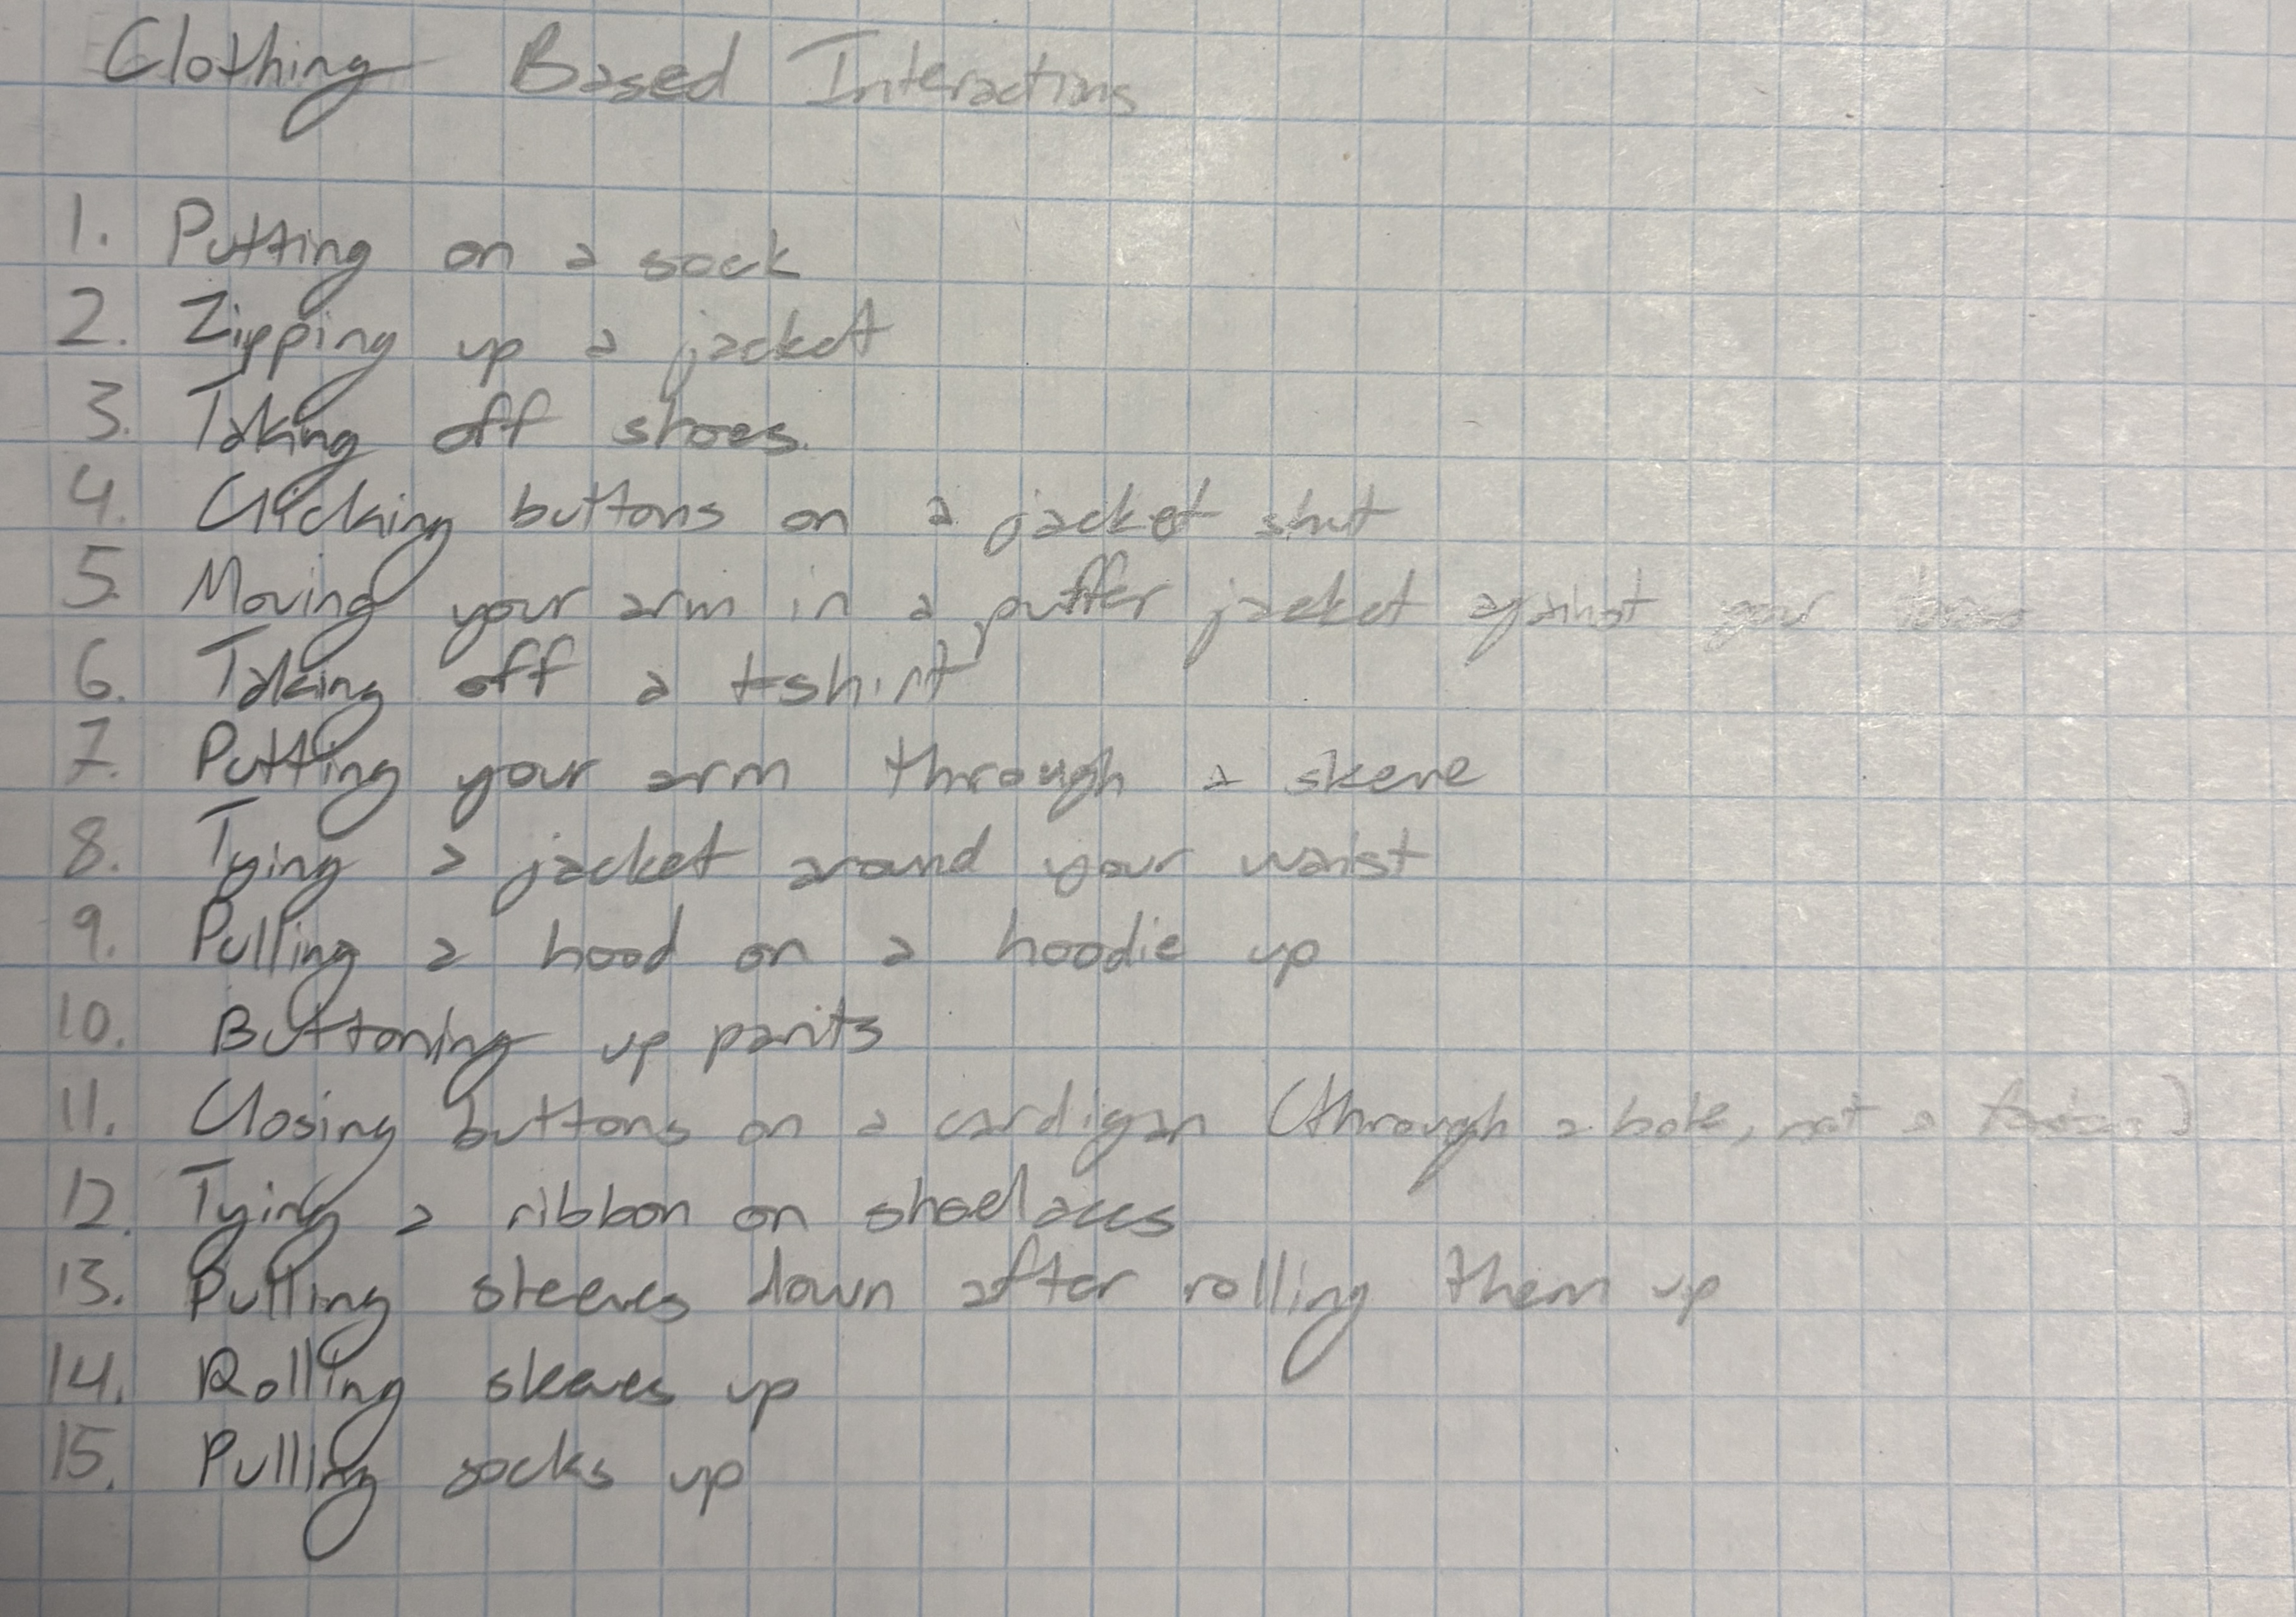 Clothing Based Interactions
1. Putting on a sock
2. Zipping up a jacket
3. Taking off shoes.
4. Clicking buttons on a jacket shut
5. Moving your arm in a puffer jacket against your torso
6. Taking off a t-shirt
7. Putting your arm through a sleeve
8. Tying a jacket around your waist
9. Pulling a hood on a hoodie up
10. Buttoning up pants
11. Closing buttons on a cardigan (through a hole, not a
12. Tying a ribbon on shoelaces
13. Pulling sleeves down after rolling them up
14. Rolling sleeves up
15. Pulling socks up